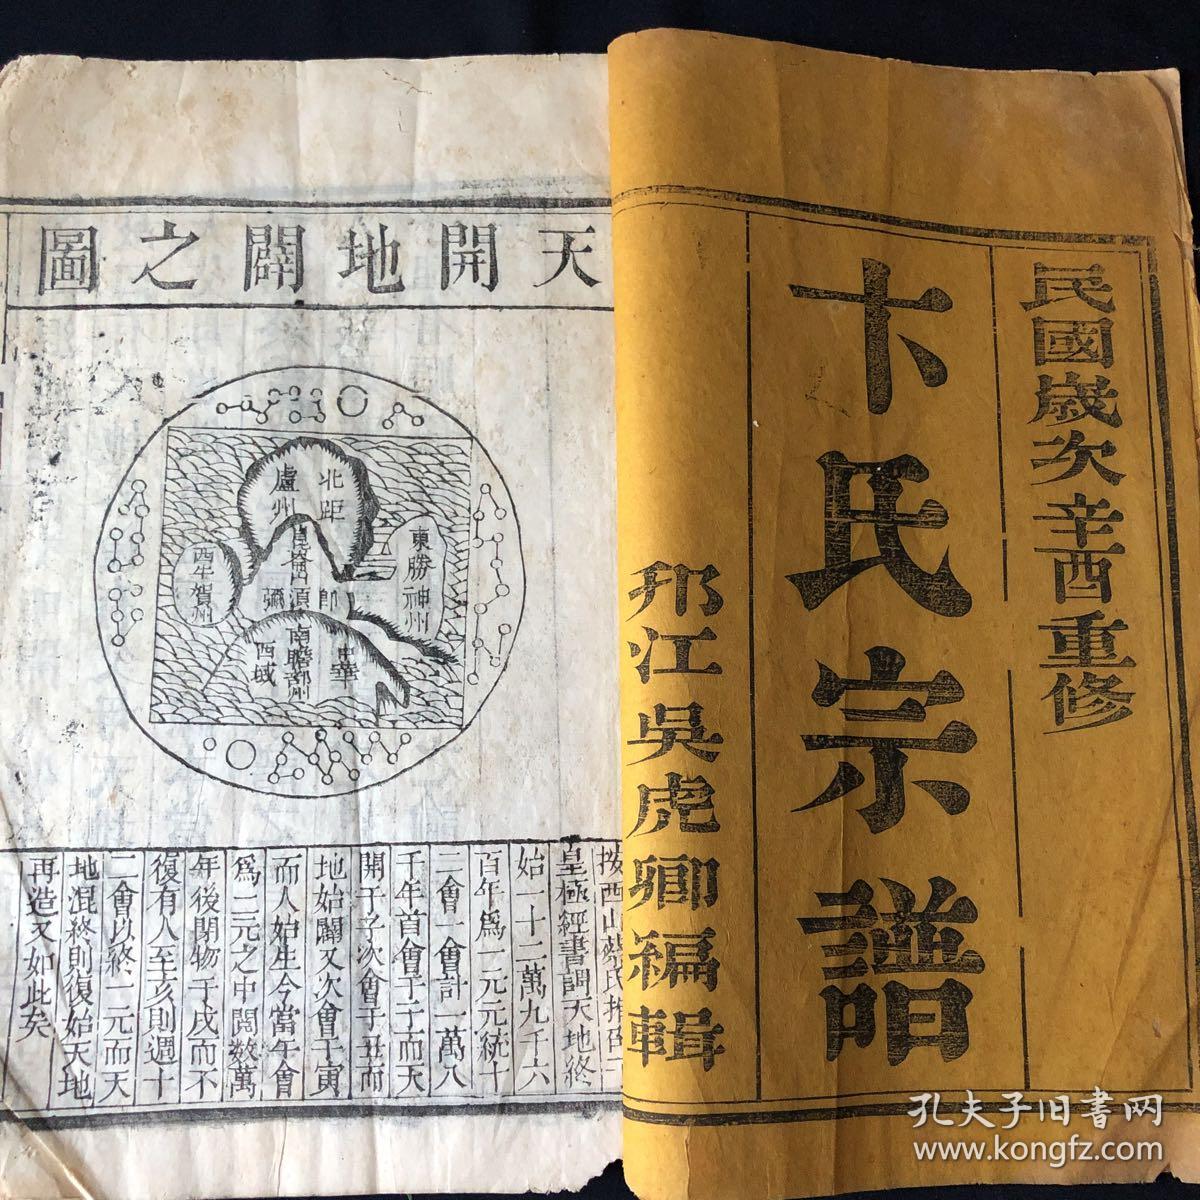 民國歲次辛酉重修
卞氏宗譜
邗江吳虎卿編輯
天開地闢之圖
北距
盧州
東勝神州
西牛賀州
崑崙
須彌
南贍部州
中華
西域
按西山蔡氏指
皇極經書謂天地終
始一十二萬九千六
百年爲一元元統十
二會一會計一萬八
千年首會于子而天
開于子次會于丑而
地始闢又次會于寅
而人始生今當午會
爲二元之中間数萬
年後閉物于戌而不
復有人至亥則週十
二會以終一元而天
地混終則復始天地
再造又如此矣
孔夫子旧书网
www.kongfz.com